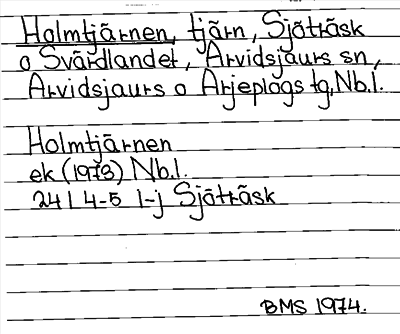 Holmtjärnen, tjärn, Sjöträsk
o Svärdlandet, Arvidsjaurs sn,
Arvidsjaurs o Arjeplogs tg, Nb.l.
Holmtjärnen
ek (1973) Nb.l.
24 I 4-5 I-j Sjöträsk
BMS 1974.